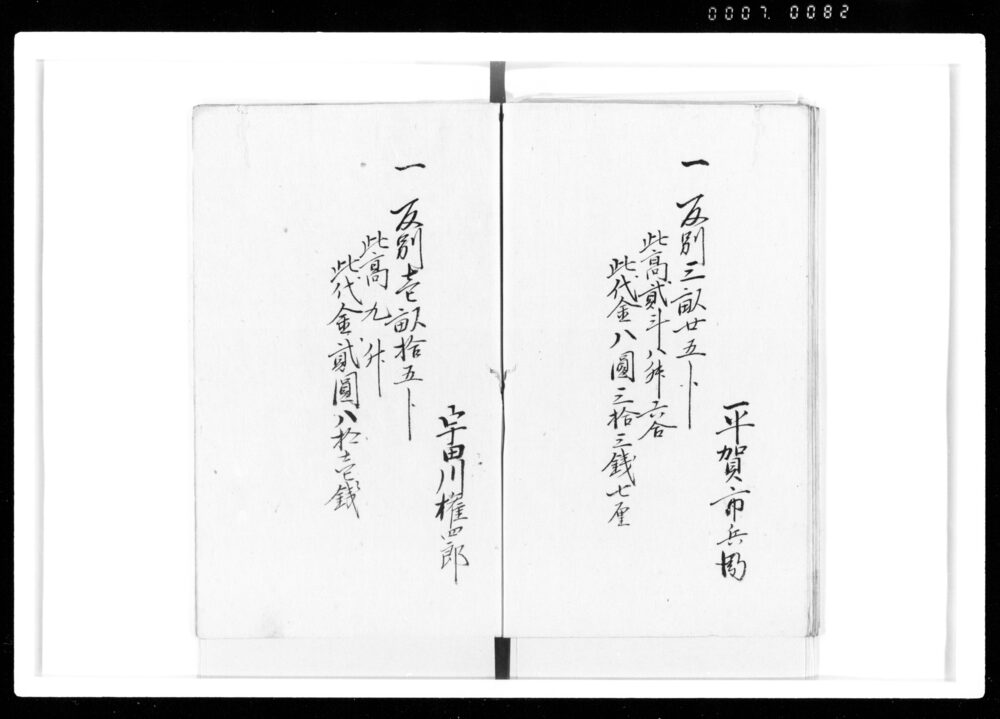 0007 0082
平賀市兵衛
一 反別三畝廿五卜
此高貳斗八升六合
此代金八圓三拾三錢七厘
宇田川権四郎
一 反別壱畝拾五卜
此高九升
此代金貳圓八拾壱錢